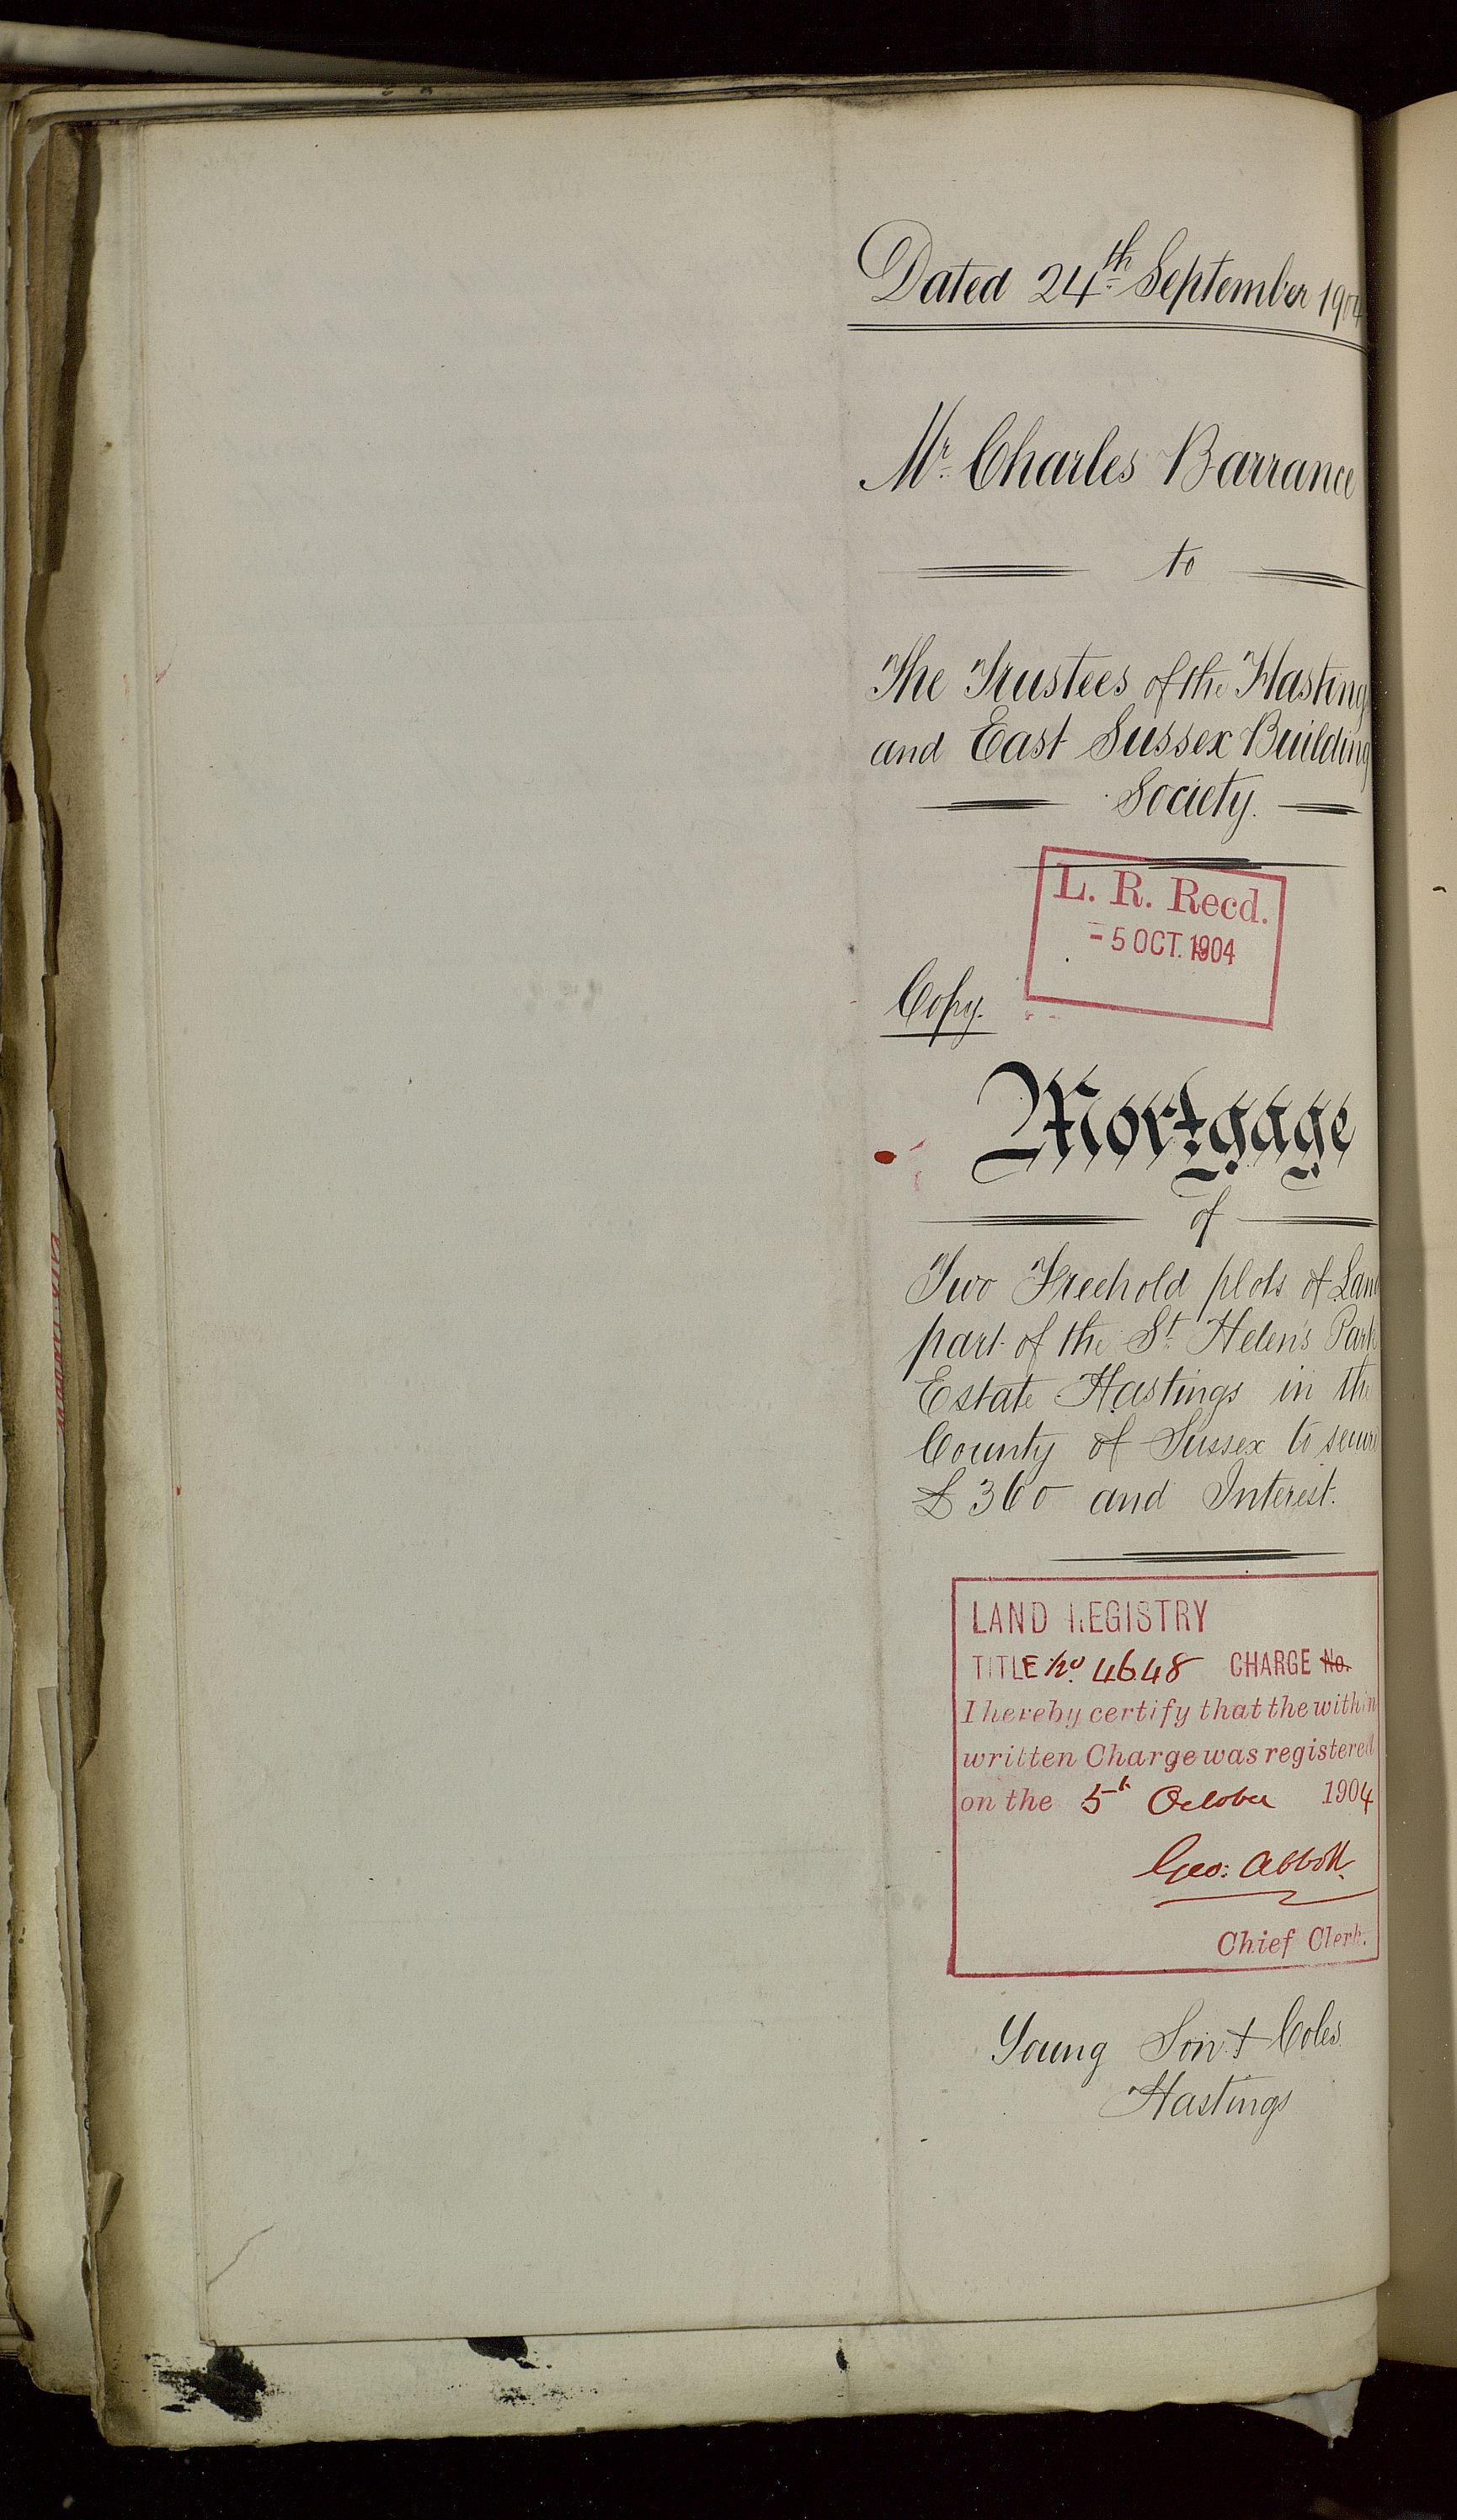 Dated 24th September 1904
Mr Charles Barrance
to
The Trustees of the Hastings
and East Sussex Building
Society.
L. R. Recd.
- 5 OCT. 1904
Copy.
Mortgage
of
Two Freehold plots of Land
part of the St Helen's Park
Estate Hastings in the
County of Sussex to secure
£360 and Interest.
LAND REGISTRY
TITLE No. 4648 CHARGE No.
I hereby certify that the within
written Charge was registered
on the 5th October 1904
Geo: Abbott.
Chief Clerk.
Young Son & Coles
Hastings